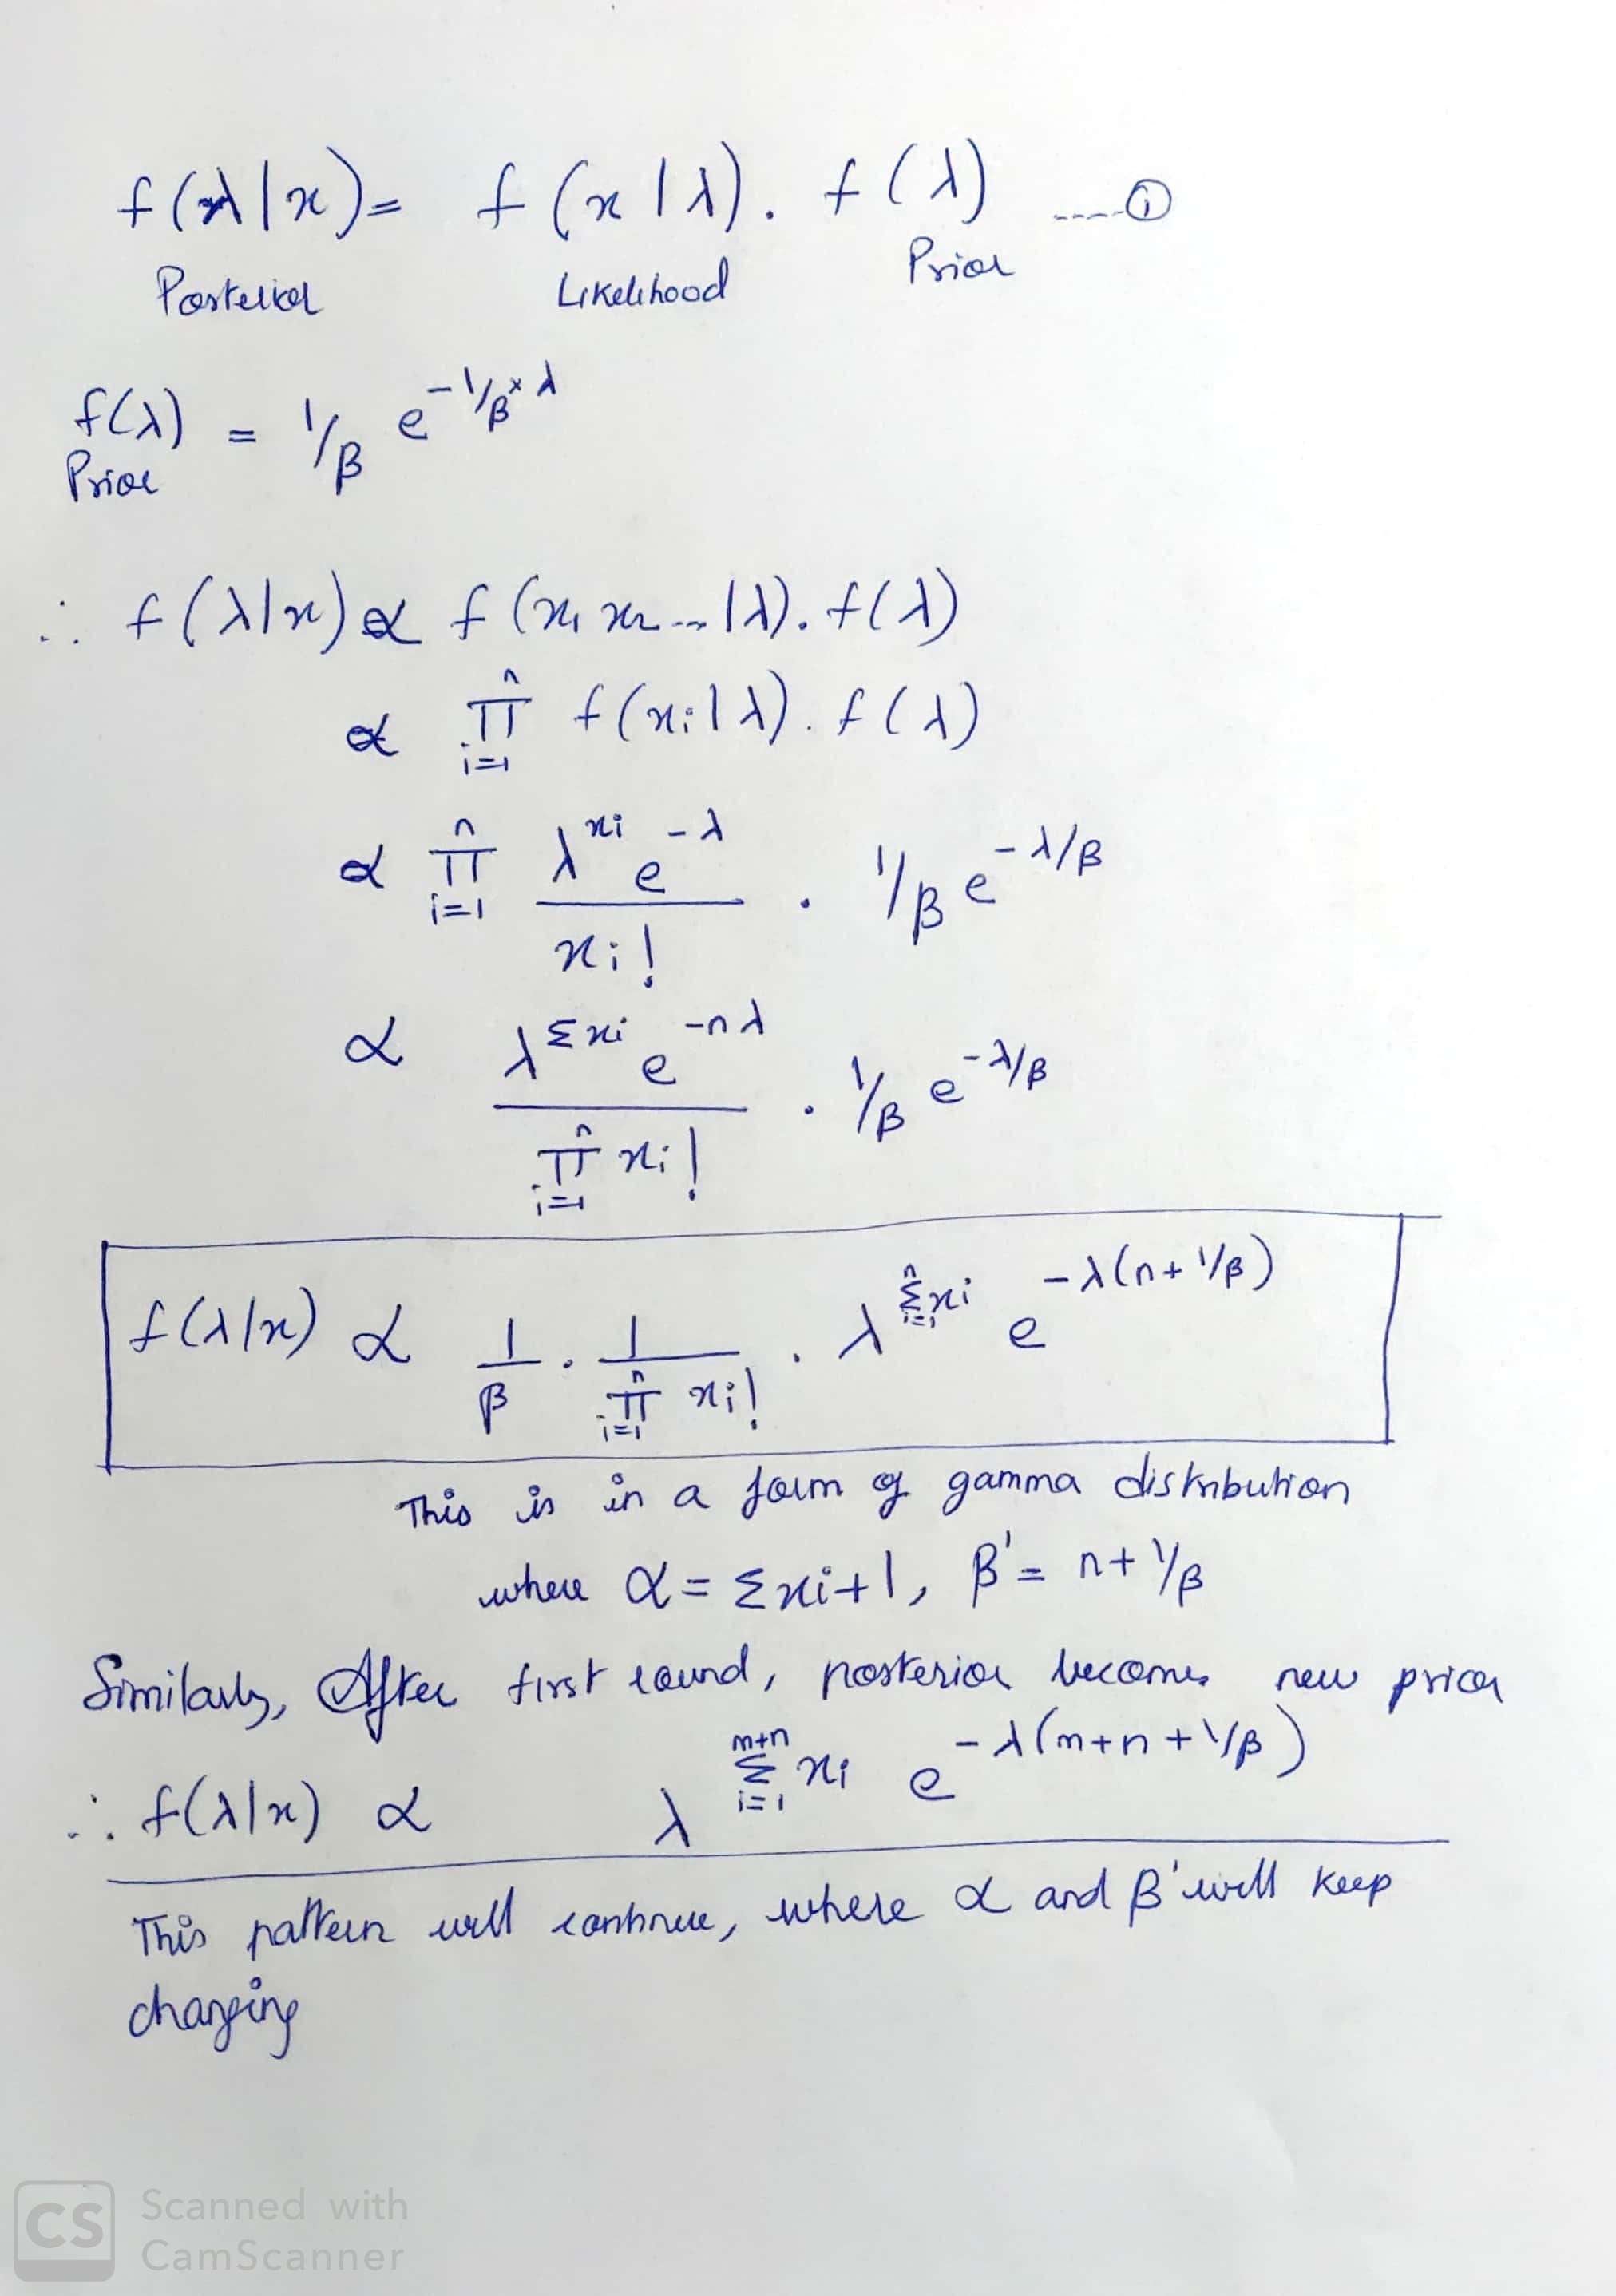 f(λ|x) = f(x|λ). f(λ) ----①
Posterior Likelihood Prior
f(λ) = 1/β e^{-1/β × λ}
Prior
∴ f(λ|x) ∝ f(x₁ x₂ ...|λ). f(λ)
∝ ∏_{i=1}^{n} f(xᵢ|λ). f(λ)
∝ ∏_{i=1}^{n} \frac{λ^{xᵢ} e^{-λ}}{xᵢ!} . 1/β e^{-λ/β}
∝ \frac{λ^{Σxᵢ} e^{-nλ}}{∏_{i=1}^{n} xᵢ!} . 1/β e^{-λ/β}
f(λ|x) ∝ \frac{1}{β} . \frac{1}{∏_{i=1}^{n} xᵢ!} . λ^{Σ_{i=1}^{n} xᵢ} e^{-λ(n+1/β)}
This is in a form of gamma distribution
where α = Σxᵢ+1, β' = n+1/β
Similarly, After first round, posterior becomes new prior
∴ f(λ|x) ∝ λ^{Σ_{i=1}^{m+n} xᵢ} e^{-λ(m+n+1/β)}
This pattern will continue, where α and β' will keep
changing
CS Scanned with
CamScanner